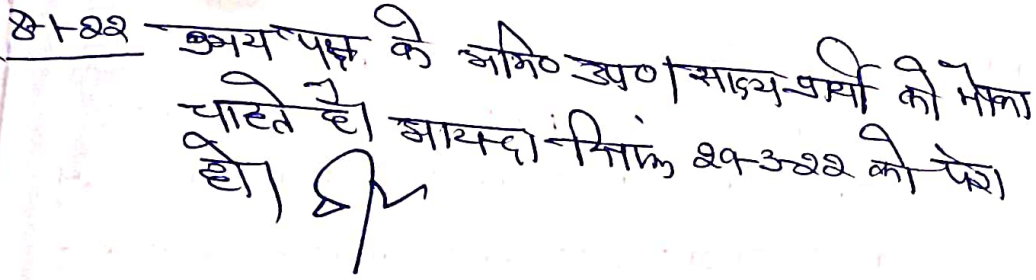 8-1-22 उभय पक्ष के अभि० उप०। साक्ष्य प्रार्थी को मौका
चाहते है। आयन्दा दिनांक 29-3-22 को पेश
हो।